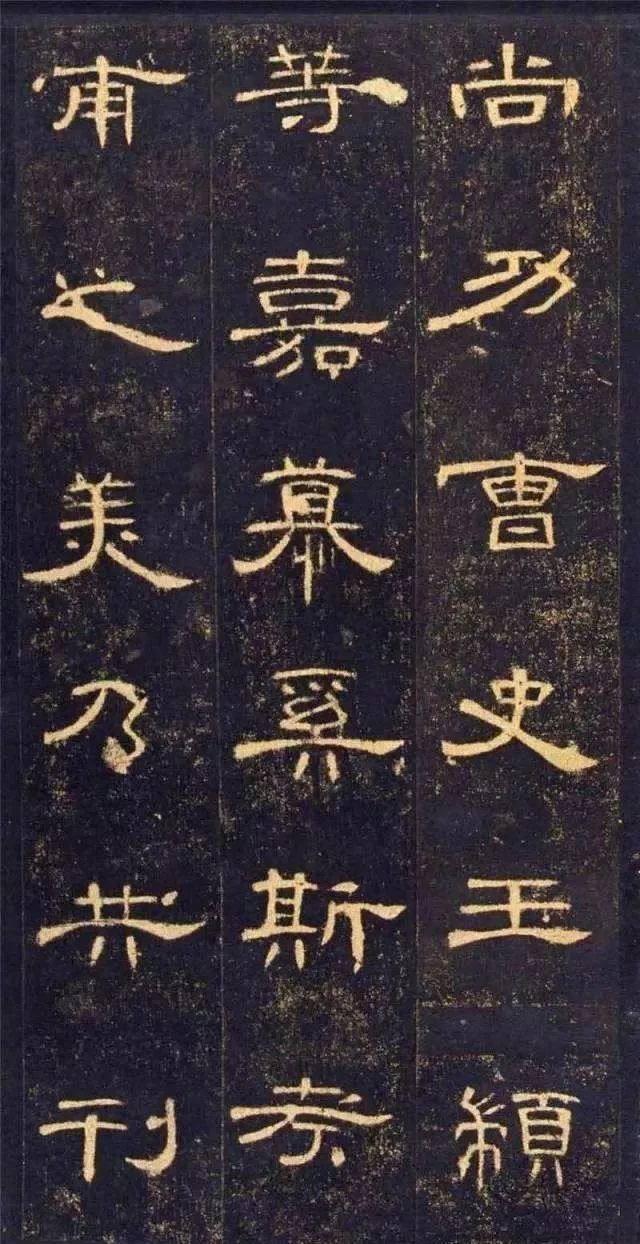 尚功曹史王顓
等嘉慕奚斯考
甫之美乃共刊